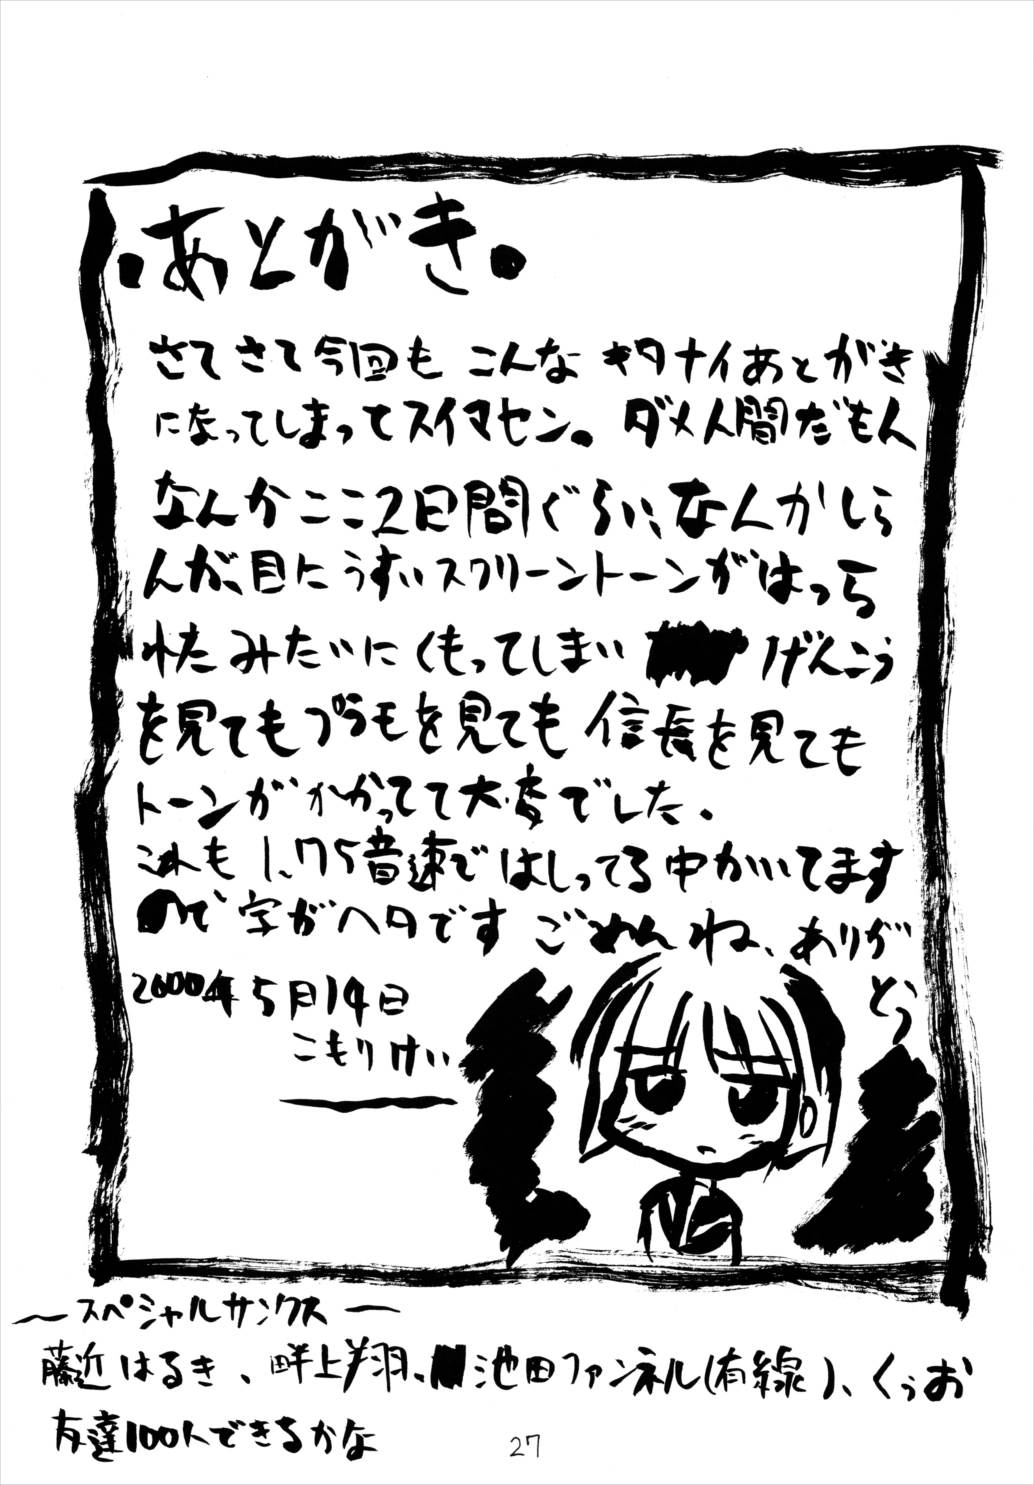 ・あとがき・
さてさて今回も こんな キタナイあとがき
になってしまってスイマセン。ダメ人間だもん
なんかここ2日間ぐらい、なんかしら
んが、目にうすいスクリーントーンがはっら
れたみたいにくもってしまい げんこう
を見てもプラモを見ても信長を見ても
トーンがかかってて大変でした。
これも1.75音速ではしってる中かいてます
ので字がヘタです ごめんね、ありが
とう
2000年5月14日
こもりけい
～スペシャルサンクス～
藤近はるき、畔上翔、池田ファンネル(有線)、くぅお
友達100人できるかな
27